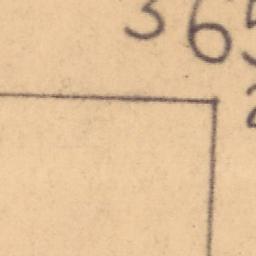 365
2